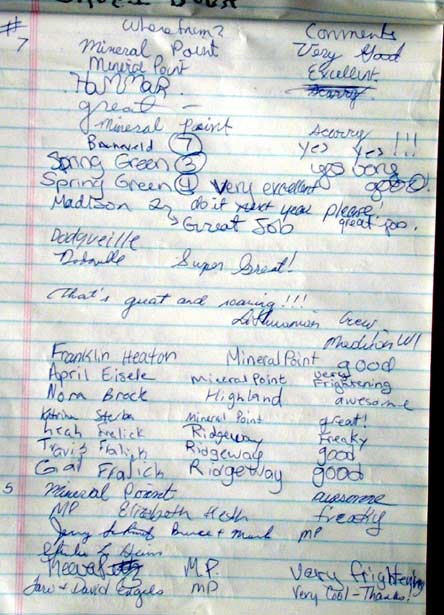 # Where from? Comments
7 Mineral Point Very Good
Mineral Point Excellent
great -
Mineral Point scarry
Barneveld 7 Yes Yes!!!
Spring Green 3
Spring Green 4 Very excellent good
Madison 2 do it next year please!
Great Job great joo.
Dodgeville
Super Great!
That's great and roaring!!!
Lithuanian Crew
Madison WI
Franklin Heaton Mineral Point good
April Eisele Mineral Point very frightening
Nora Brock Highland awesome
Katrina Sterba Mineral Point great!
Leah Fralick Ridgeway freaky
Travis Fralich Ridgeway good
Gail Fralich Ridgeway good
5 Mineral Point awesome
MP Elizabeth freaky
Jerry Bruce + Mark MP
M.P. Very frightening
David Engels MP Very Cool - Thanks!